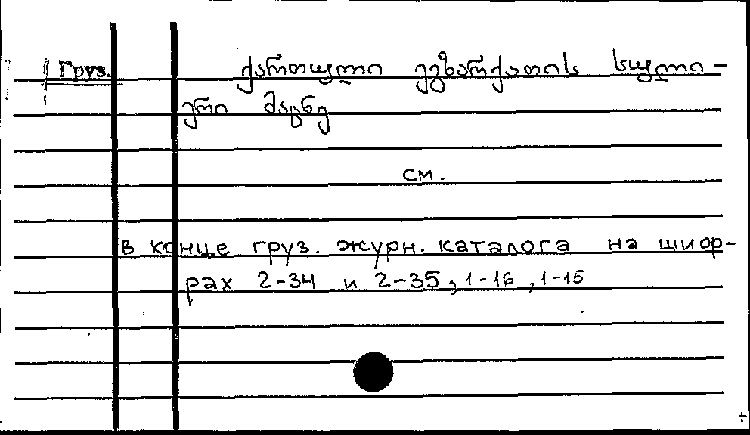 Груз.
ქართული ეგზარქატის სული-
ერი მაცნე
см.
в конце груз. журн. каталога на шиф-
рах 2-34 и 2-35, 1-16, 1-15